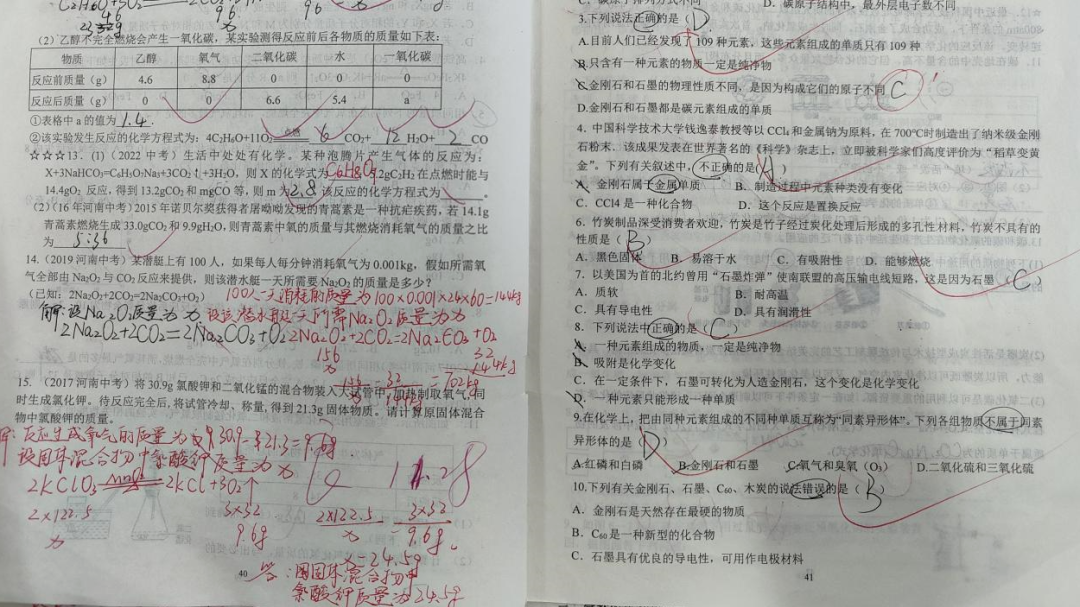 （2）乙醇不完全燃烧会产生一氧化碳，某实验测得反应前后各物质的质量如下表：
物质 乙醇 氧气 二氧化碳 水 一氧化碳
反应前质量（g） 4.6 8.8 0 0 0
反应后质量（g） 0 0 6.6 5.4 a
①表格中 a 的值为 1.4.
②该实验发生反应的化学方程式为：4C2H6O+11O2 点燃 6 CO2+ 12 H2O+ 2 CO
☆☆☆13.（1）（2022 中考）生活中处处有化学。某种泡腾片产生气体的反应为：
X+3NaHCO3=C6H5O7Na3+3CO2↑+3H2O，则 X 的化学式为 C6H8O7 2gC2H2 在点燃时能与
14.4gO2 反应，得到 13.2gCO2 和 mgCO 等，则 m 为 2.8 该反应的化学方程式为
（2）（16 年河南中考）2015 年诺贝尔奖获得者屠呦呦发现的青蒿素是一种抗疟疾药，若 14.1g
青蒿素燃烧生成 33.0gCO2 和 9.9gH2O，则青蒿素中氧的质量与其燃烧消耗氧气的质量之比
为 5:36
14.（2019 河南中考）某潜艇上有 100 人，如果每人每分钟消耗氧气为 0.001kg，假如所需氧
气全部由 Na2O2 与 CO2 反应来提供，则该潜水艇一天所需要 Na2O2 的质量是多少？
（已知：2Na2O2+2CO2=2Na2CO3+O2）
100人一天消耗的质量为100×0.001×24×60=144kg
解:设Na2O2质量为x 设该潜水艇一天所需Na2O2质量为x
2Na2O2+2CO2=2Na2CO3+O2 2Na2O2+2CO2=2Na2CO3+O2
156 32
x 144kg
702kg
15.（2017 河南中考）将 30.9g 氯酸钾和二氧化锰的混合物装入大试管中，加热制取氧气，同
时生成氯化钾。待反应完全后，将试管冷却、称量，得到 21.3g 固体物质。请计算原固体混合
物中氯酸钾的质量。
解:反应生成氧气的质量为30.9-21.3=9.6g
设固体混合物中氯酸钾质量为x
2KClO3 MnO2 2KCl+3O2↑
2×122.5 3×32
x 9.6g
2×122.5 3×32
x 9.6g
x=24.5g
答:原固体混合物中
氯酸钾质量为24.5g
11.28
40
D．碳原子结构中，最外层电子数不同
3.下列说法正确的是（D）
A.目前人们已经发现了 109 种元素，这些元素组成的单质只有 109 种
B.只含有一种元素的物质一定是纯净物
C.金刚石和石墨的物理性质不同，是因为构成它们的原子不同 C
D.金刚石和石墨都是碳元素组成的单质
4. 中国科学技术大学钱逸泰教授等以 CCl4 和金属钠为原料，在 700℃时制造出了纳米级金刚
石粉末．该成果发表在世界著名的《科学》杂志上，立即被科学家们高度评价为“稻草变黄
金”。下列有关叙述中，不正确的是（A）
A．金刚石属于金属单质 B．制造过程中元素种类没有变化
C．CCl4 是一种化合物 D．这个反应是置换反应
6. 竹炭制品深受消费者欢迎，竹炭是竹子经过炭化处理后形成的多孔性材料，竹炭不具有的
性质是（B）
A．黑色固体 B．易溶于水 C．有吸附性 D．能够燃烧
7．以美国为首的北约曾用“石墨炸弹”使南联盟的高压输电线短路，这是因为石墨（C）
A．质软 B．耐高温
C．具有导电性 D．具有润滑性
8．下列说法中正确的是（C）
A．一种元素组成的物质，一定是纯净物
B．吸附是化学变化
C．在一定条件下，石墨可转化为人造金刚石，这个变化是化学变化
D．一种元素只能形成一种单质
9.在化学上，把由同种元素组成的不同种单质互称为“同素异形体”。下列各组物质不属于同素
异形体的是（D）
A.红磷和白磷 B.金刚石和石墨 C.氧气和臭氧（O3） D.二氧化硫和三氧化硫
10.下列有关金刚石、石墨、C60、木炭的说法错误的是（B）
A．金刚石是天然存在最硬的物质
B．C60 是一种新型的化合物
C．石墨具有优良的导电性，可用作电极材料
41